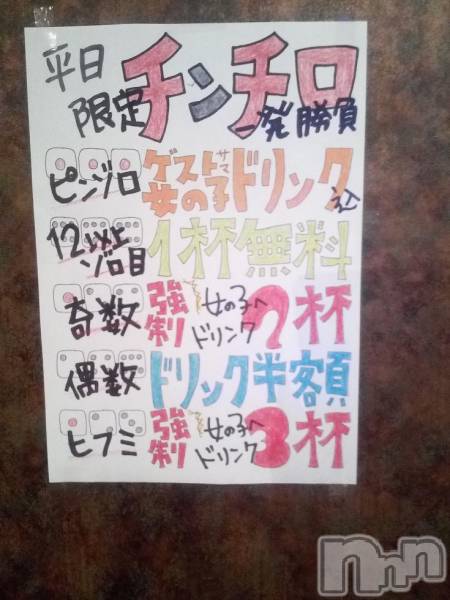 平日限定 チンチロ 一発勝負
ピンゾロ ゲストサマ女の子ドリンク込
12以上ゾロ目 1杯無料
奇数 強制 女の子へドリンク2杯
偶数 ドリンク半額
ヒフミ 強制 女の子へドリンク3杯
nnn